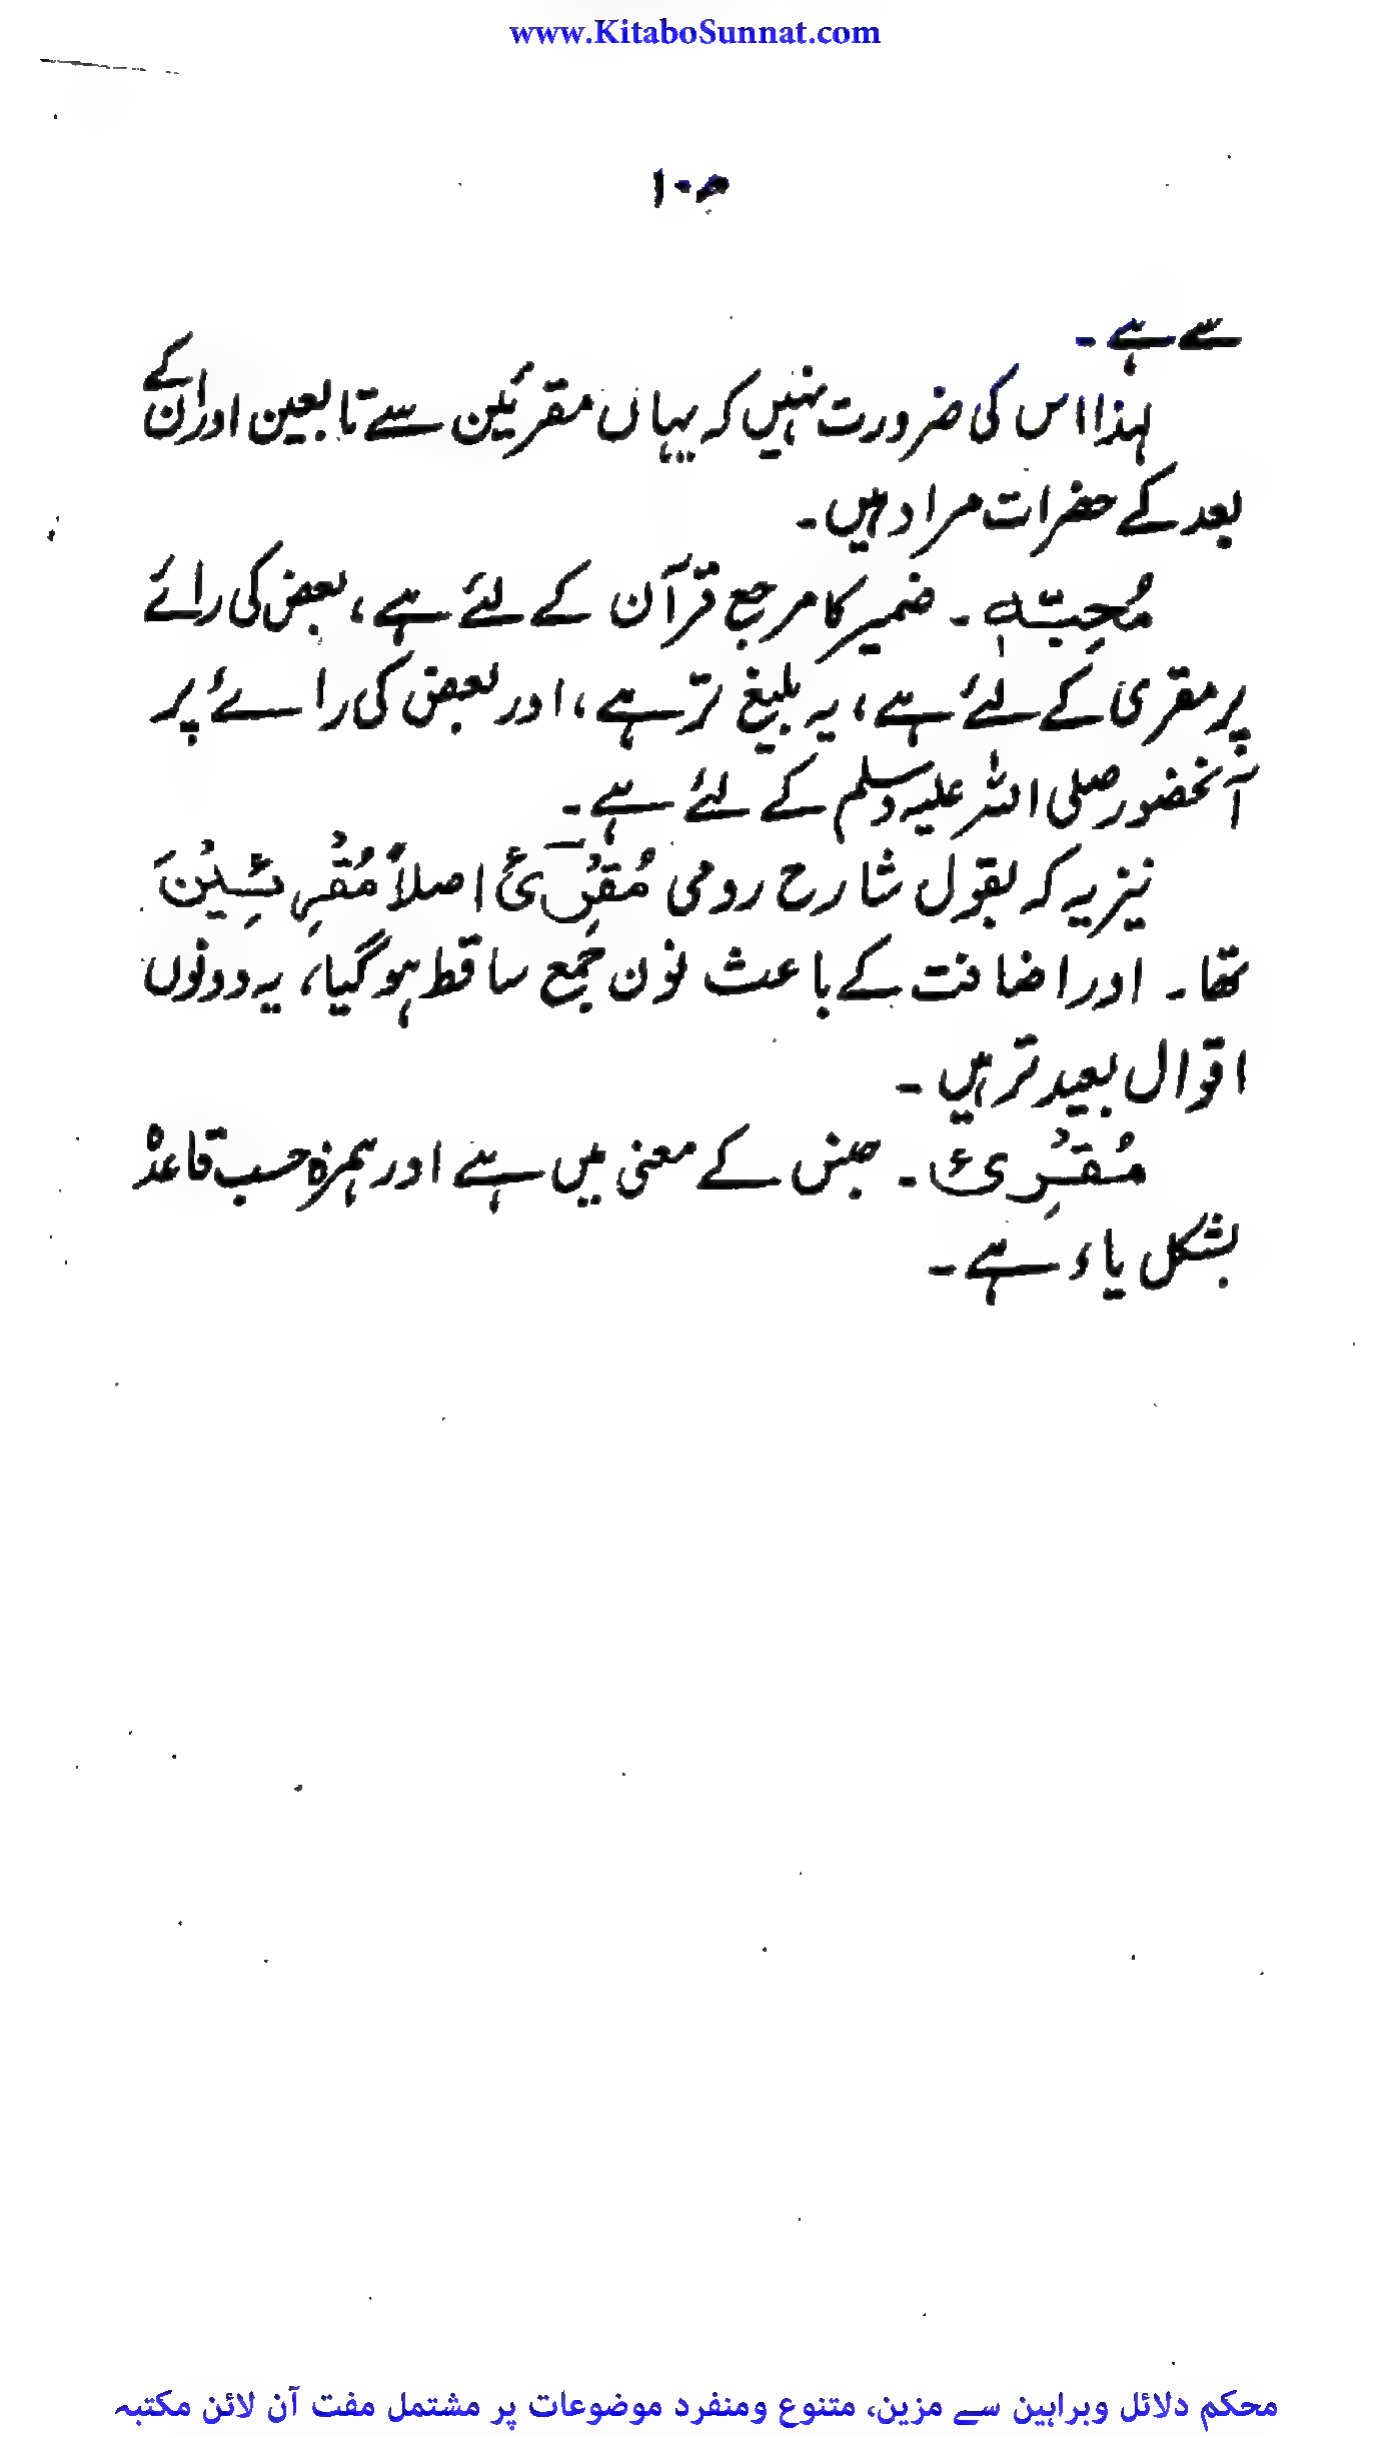 www.KitaboSunnat.com
سے ہے۔
لہذا اس کی ضرورت نہیں کہ یہاں مقرئین سے تابعین اور ان کے
بعد کے حضرات مراد ہیں۔
مُحِبِّہٖ۔ ضمیر کا مرجع قرآن کے لئے ہے، بعض کی رائے
پر مقری کے لئے ہے، یہ بلیغ تر ہے، اور بعض کی رائے پر
آنحضور صلی اللہ علیہ وسلم کے لئے ہے۔
نیز یہ کہ بقول شارح رومی مُقْرِئ اصلاً مُقْرِئِیْنَ
تھا۔ اور اضافت کے باعث نون جمع ساقط ہوگیا، یہ دونوں
اقوال بعید تر ہیں۔
مُقْرِئ۔ جنس کے معنی میں ہے اور ہمزہ حسب قاعدہ
بشکل یاء ہے۔
محکم دلائل وبراہین سے مزین، متنوع ومنفرد موضوعات پر مشتمل مفت آن لائن مکتبہ